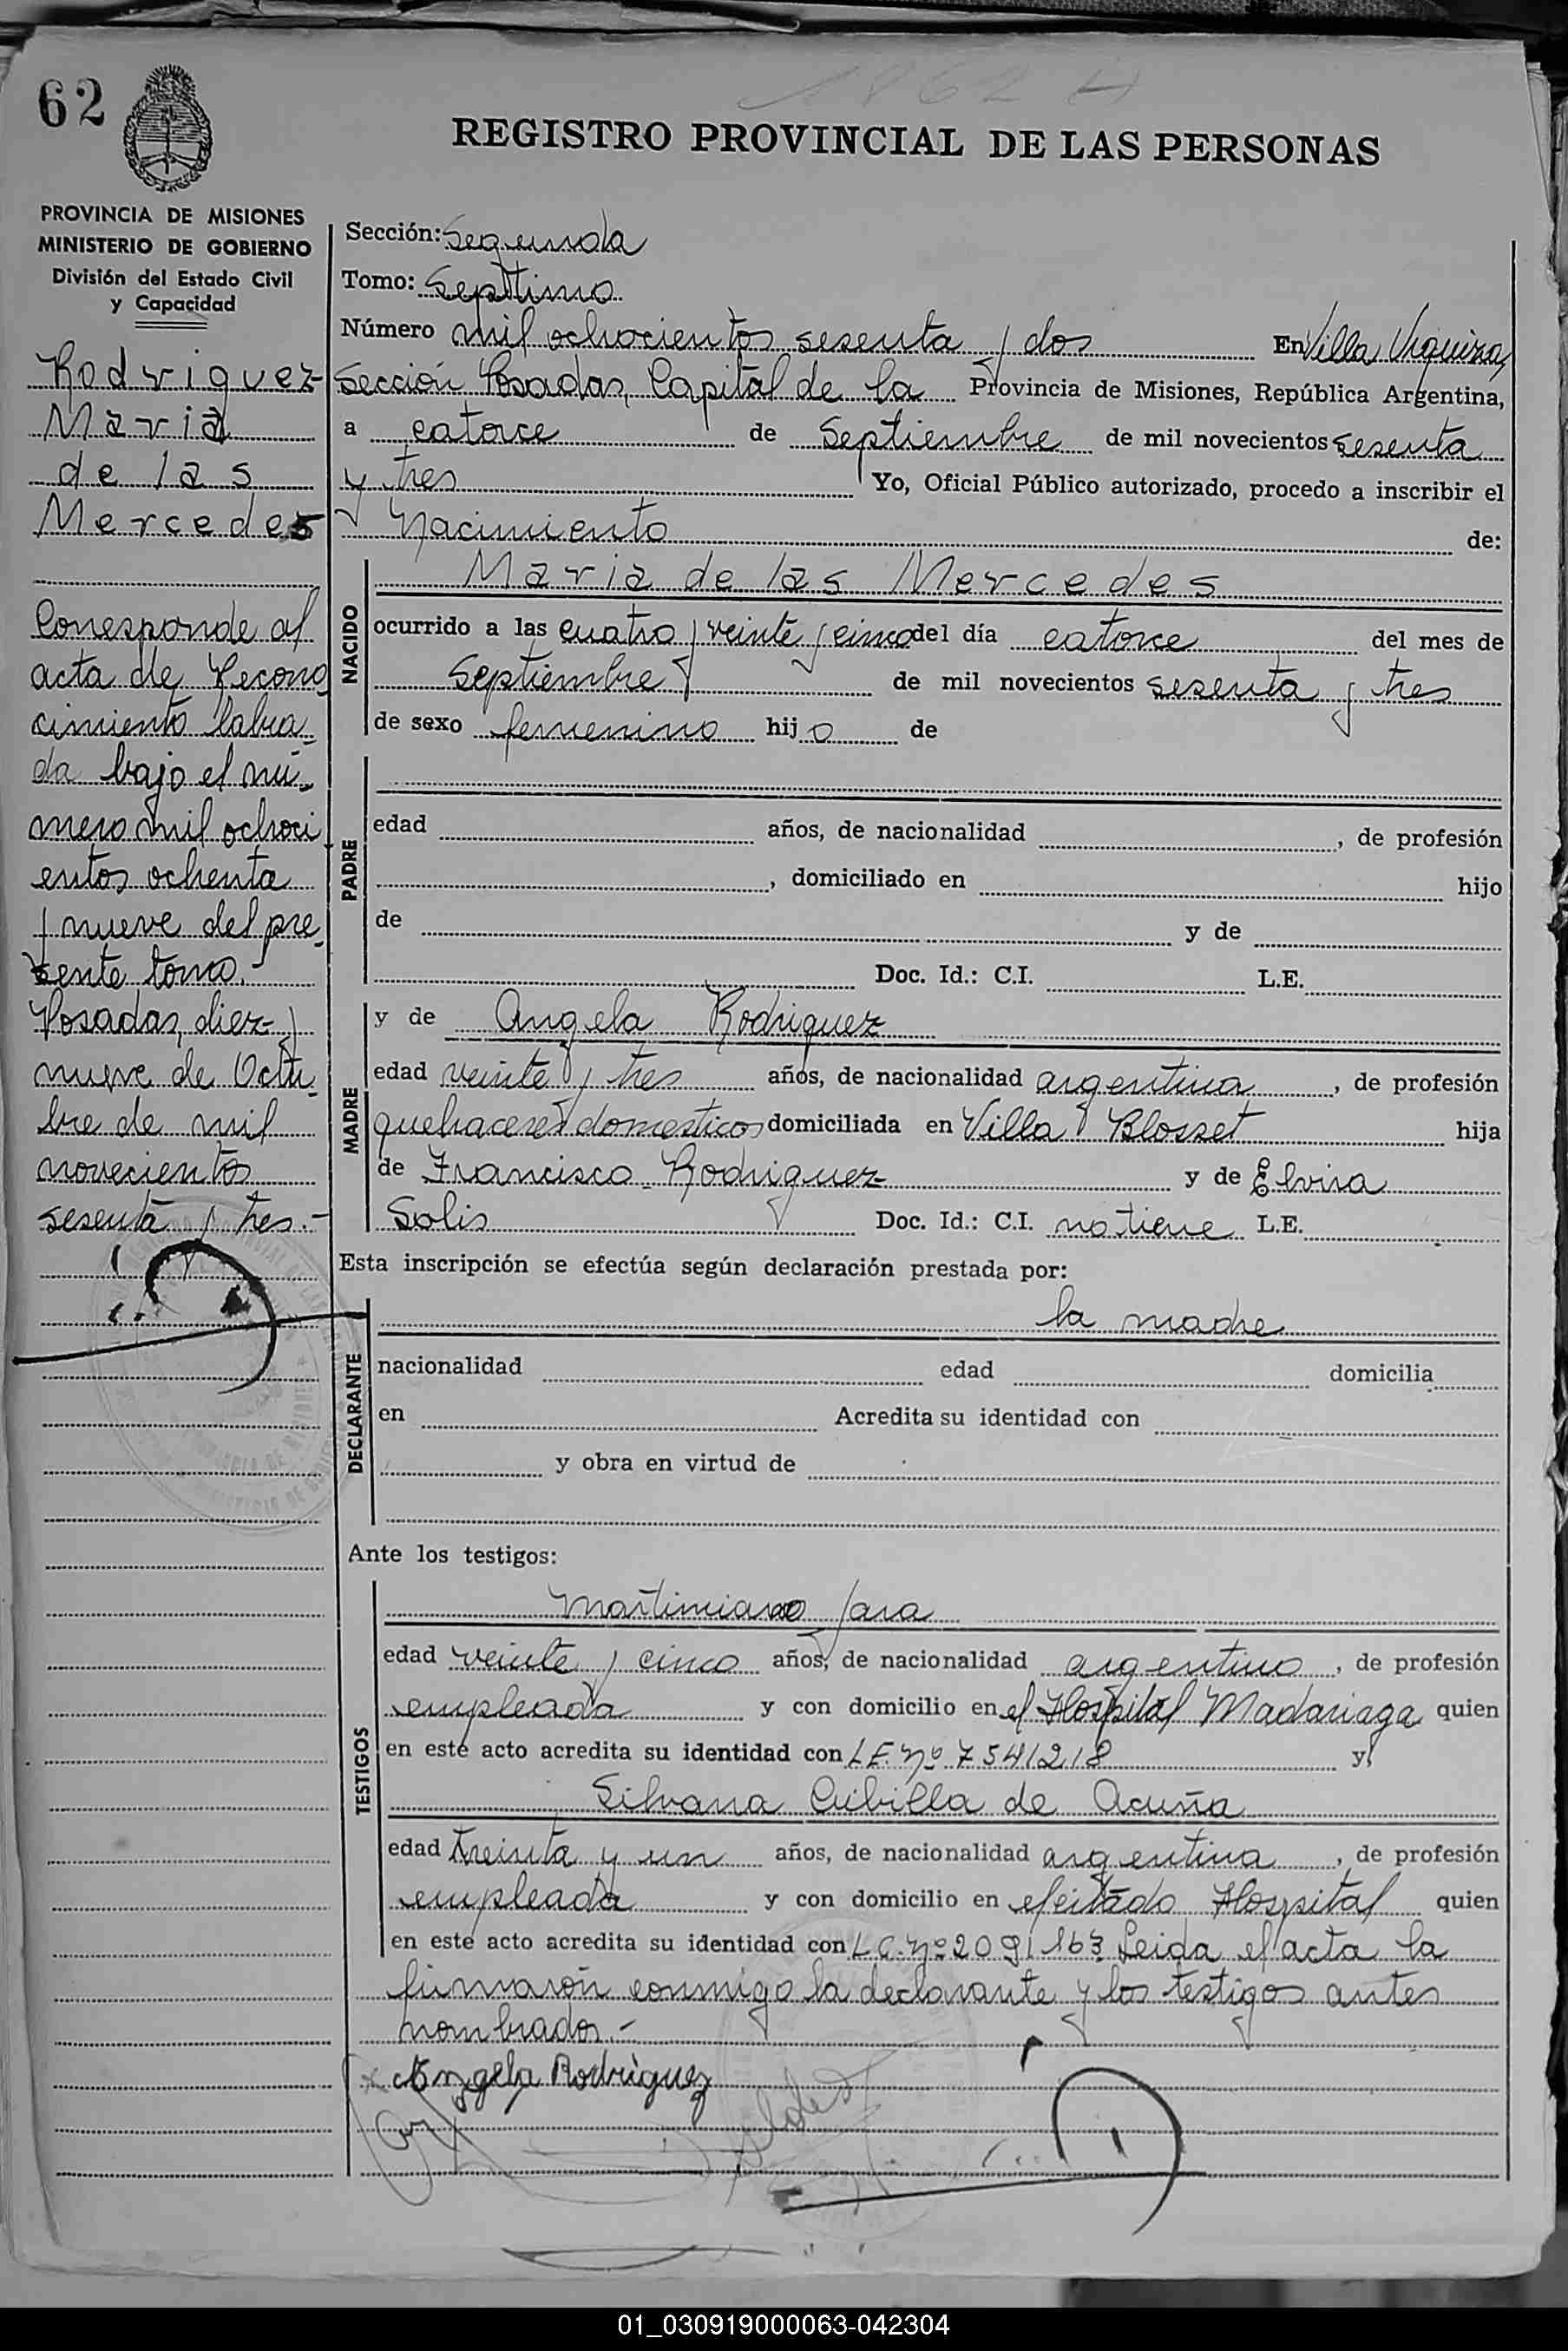 62
1862 H
REGISTRO PROVINCIAL DE LAS PERSONAS
PROVINCIA DE MISIONES
MINISTERIO DE GOBIERNO
División del Estado Civil
y Capacidad
Rodriguez
Maria
de las
Mercedes
Corresponde al
acta de Recono
cimiento labra-
da bajo el nú-
mero mil ochoci
entos ochenta
y nueve del pre-
sente tomo.
Posadas, diez y
nueve de Octu-
bre de mil
novecientos
sesenta y tres.-
Sección: Segunda
Tomo: Septimo
Número mil ochocientos sesenta y dos En Villa Urquiza,
Sección Posadas, Capital de la Provincia de Misiones, República Argentina,
a catorce de Septiembre de mil novecientos sesenta
y tres Yo, Oficial Público autorizado, procedo a inscribir el
Nacimiento de:
NACIDO
Maria de las Mercedes
ocurrido a las cuatro y veinte y cinco del día catorce del mes de
Septiembre de mil novecientos sesenta y tres
de sexo femenino hijo de
PADRE
edad años, de nacionalidad , de profesión
, domiciliado en hijo
de y de
Doc. Id.: C.I. L.E.
MADRE
y de Angela Rodriguez
edad veinte y tres años, de nacionalidad argentina , de profesión
quehaceres domesticos domiciliada en Villa Blosset hija
de Francisco Rodriguez y de Elvira
Solis Doc. Id.: C.I. no tiene L.E.
Esta inscripción se efectúa según declaración prestada por:
DECLARANTE
la madre
nacionalidad edad domicilia
en Acredita su identidad con
y obra en virtud de
Ante los testigos:
TESTIGOS
Martimiano Jara
edad veinte y cinco años, de nacionalidad argentino , de profesión
empleada y con domicilio en el Hospital Madariaga quien
en este acto acredita su identidad con L.E. Nº 7541218 y
Silvana Cubilla de Acuña
edad treinta y un años, de nacionalidad argentina , de profesión
empleada y con domicilio en el citado Hospital quien
en este acto acredita su identidad con L.C. Nº 2091163 Leida el acta la
firmaron conmigo la declarante y los testigos antes
nombrados.-
Angela Rodriguez
01_030919000063-042304